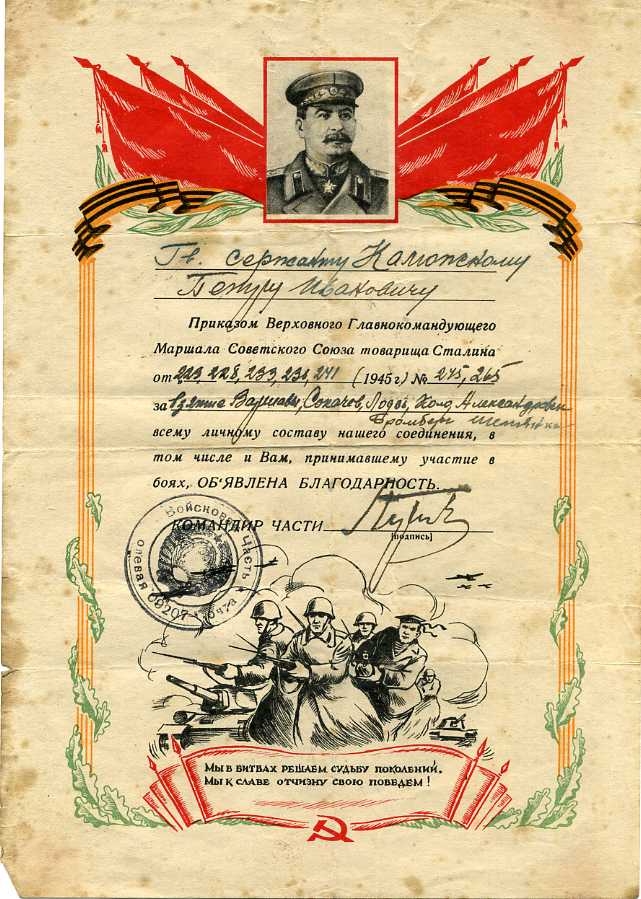 Гв. сержанту
Петру Ивановичу
Приказом Верховного Главнокомандующего
Маршала Советского Союза товарища Сталина
от 223, 228, 233, 241 (1945 г.) № 265
за взятие Варшавы, Сохачев, Лодзь,
Бромберг
всему личному составу нашего соединения, в
том числе и Вам, принимавшему участие в
боях, ОБ'ЯВЛЕНА БЛАГОДАРНОСТЬ.
КОМАНДИР ЧАСТИ
[подпись]
Войсковая Часть
МЫ В БИТВАХ РЕШАЕМ СУДЬБУ ПОКОЛЕНИЙ,
МЫ К СЛАВЕ ОТЧИЗНУ СВОЮ ПОВЕДЕМ!